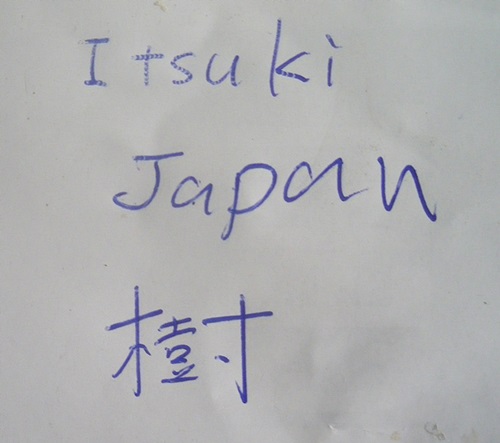 Itsuki
Japan
樹